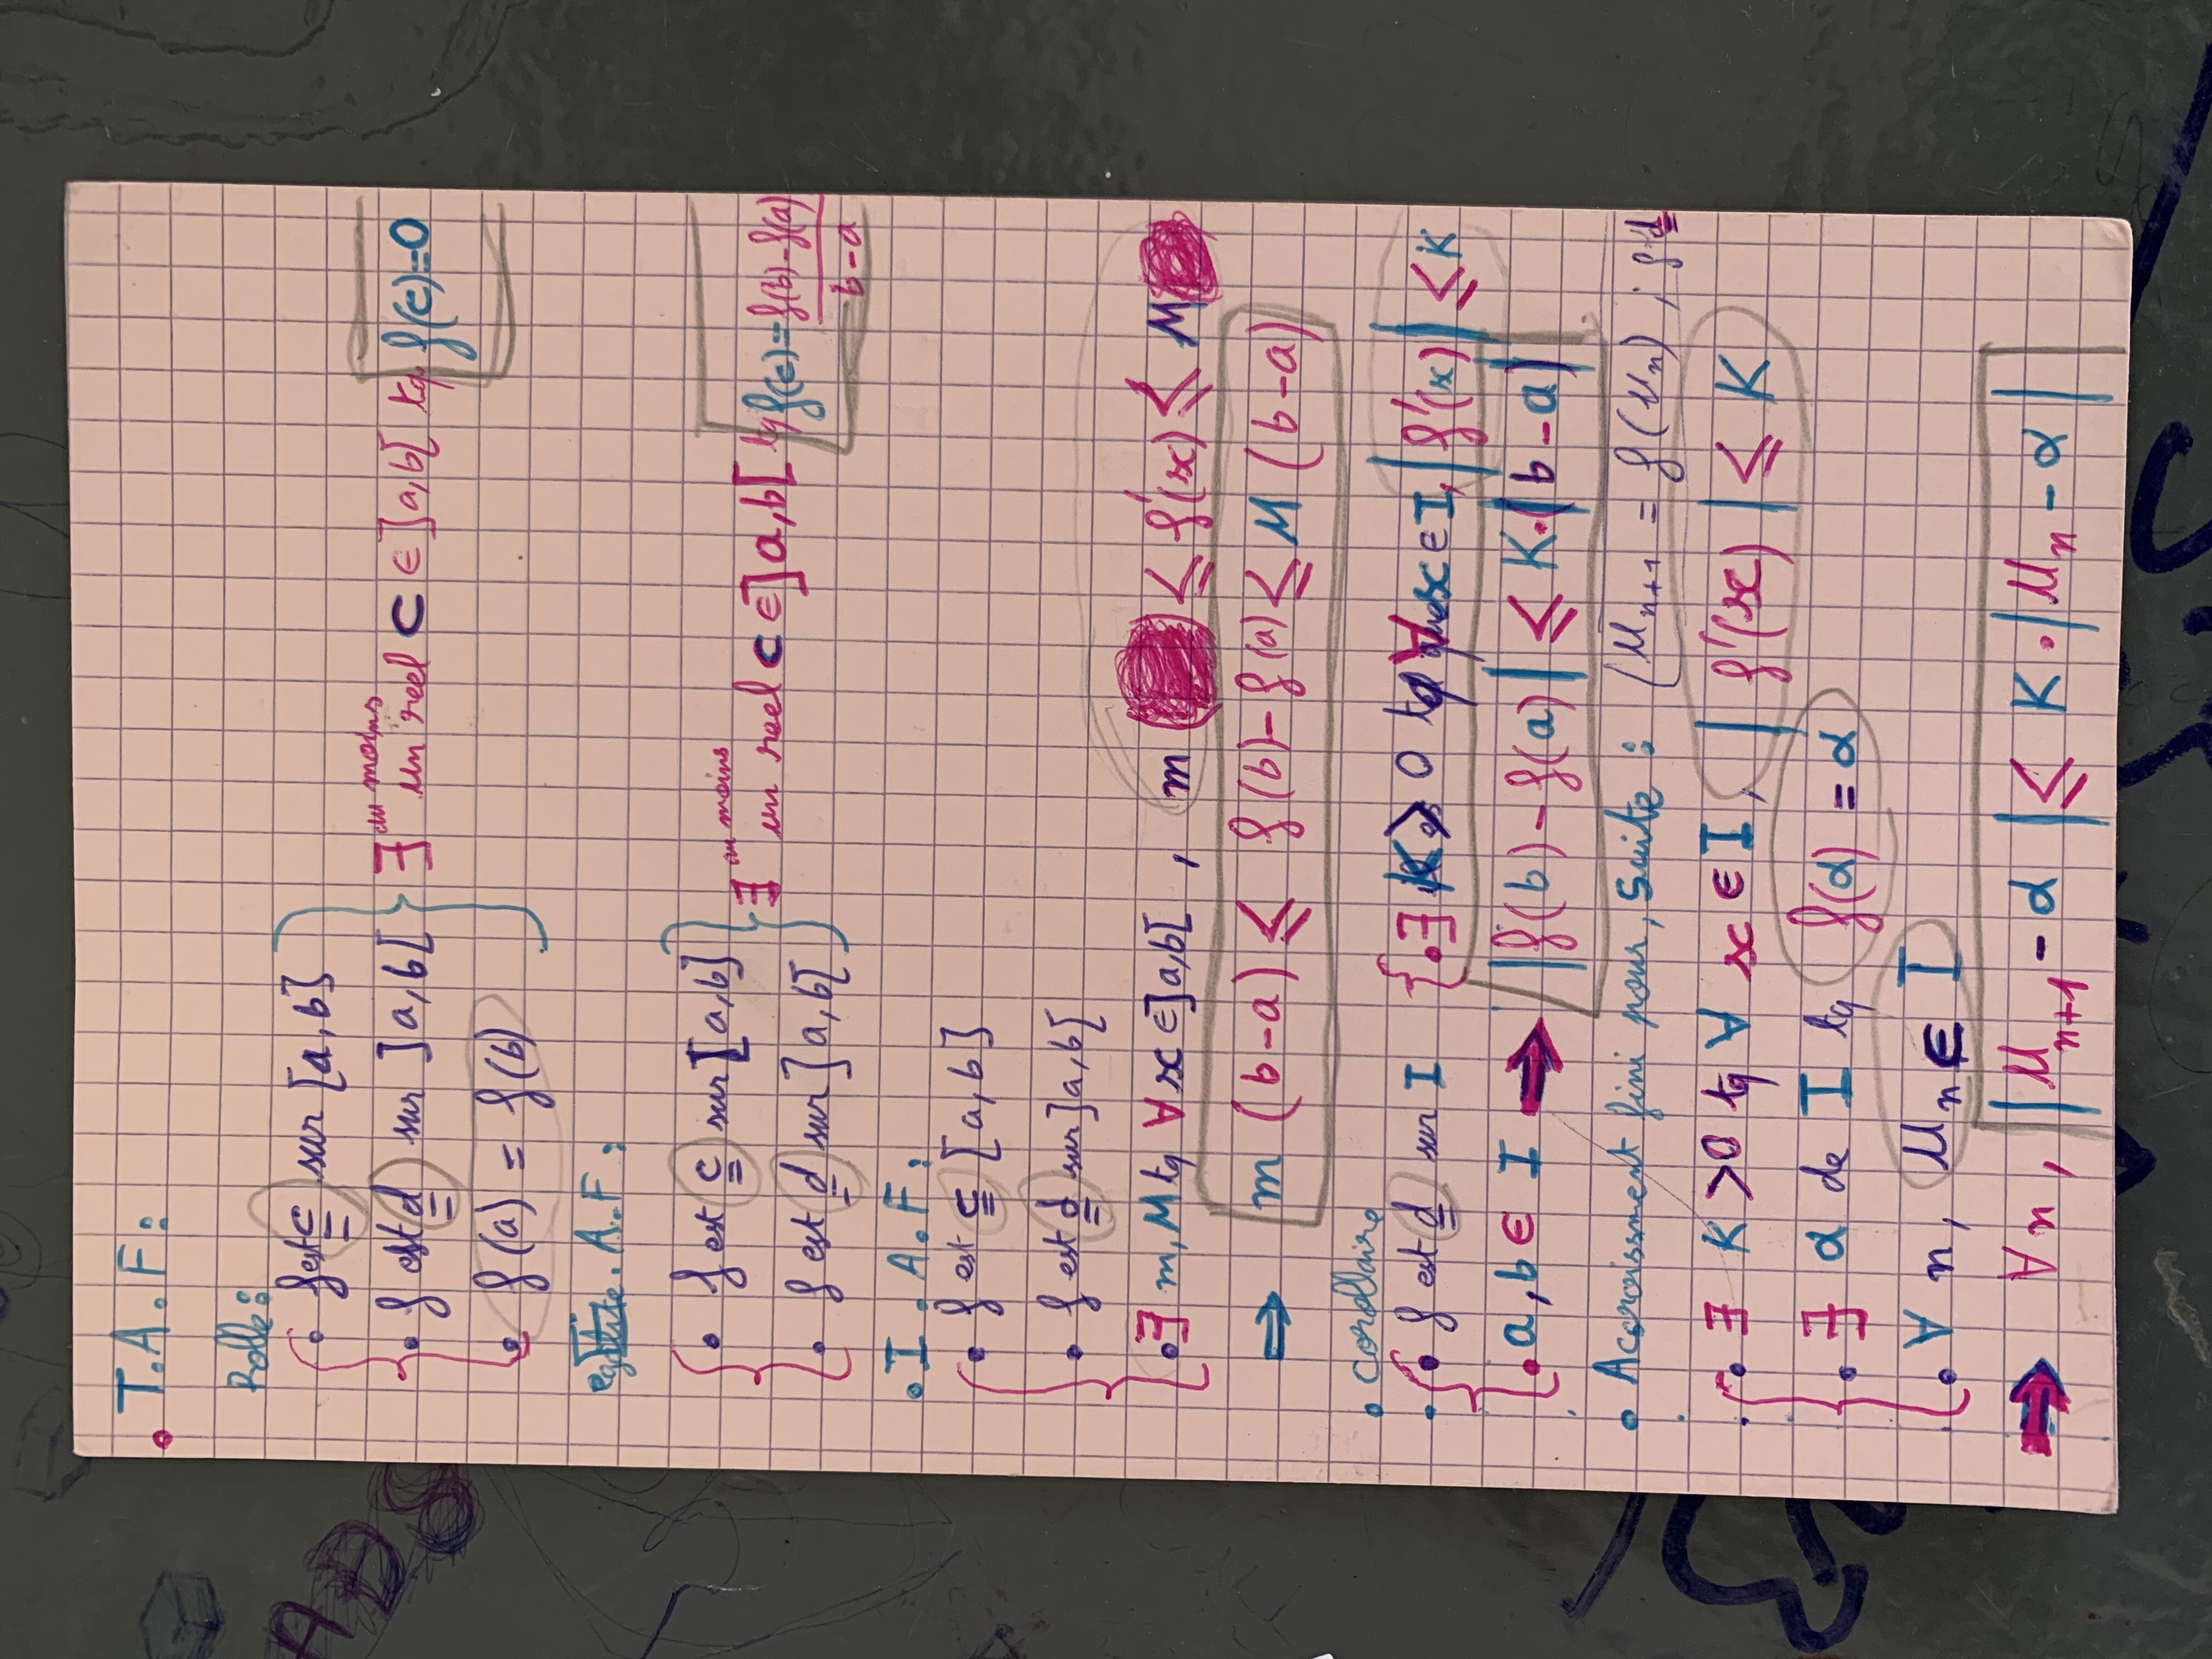 • T.A.F:
Rolle:
• f est c sur [a,b]
• f est d sur ]a,b[ ∃ au moins un reel c ∈ ]a,b[ tq f(c)=0
• f(a) = f(b)
egalite.A.F:
• f est c sur [a,b]
∃ au moins un reel c ∈ ]a,b[ tq f(c) = f(b)-f(a) / b-a
• f est d sur ]a,b[
• I.A.F:
• f est c [a,b]
• f est d sur ]a,b[
• ∃ m,M tq ∀x ∈ ]a,b[ , m ≤ f'(x) ≤ M
⇒ m (b-a) ≤ f(b)-f(a) ≤ M (b-a)
• corollaire
• f est d sur I {• ∃ K > 0 tq ∀ x ∈ I, |f'(x)| ≤ K
• a,b ∈ I ⇒ |f(b)-f(a)| ≤ K.|b-a|
• Accroissment fini pour, Suite : (Un+1 = f(Un) ; f d
• ∃ K >0 tq ∀ x ∈ I, |f'(x)| ≤ K
• ∃ α de I tq f(α) = α
• ∀ n, Un ∈ I
⇒ ∀n, |Un+1 - α| ≤ K.|Un - α|